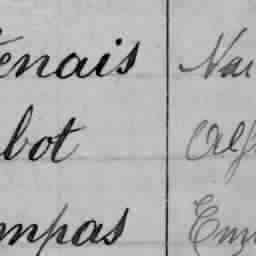 enais Nar
bot Alf
mpas Em